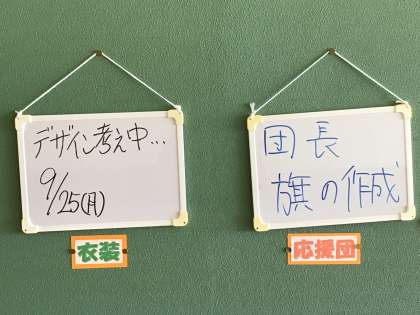 デザイン考え中…
9/25(月)
衣装
団長
旗の作成
応援団